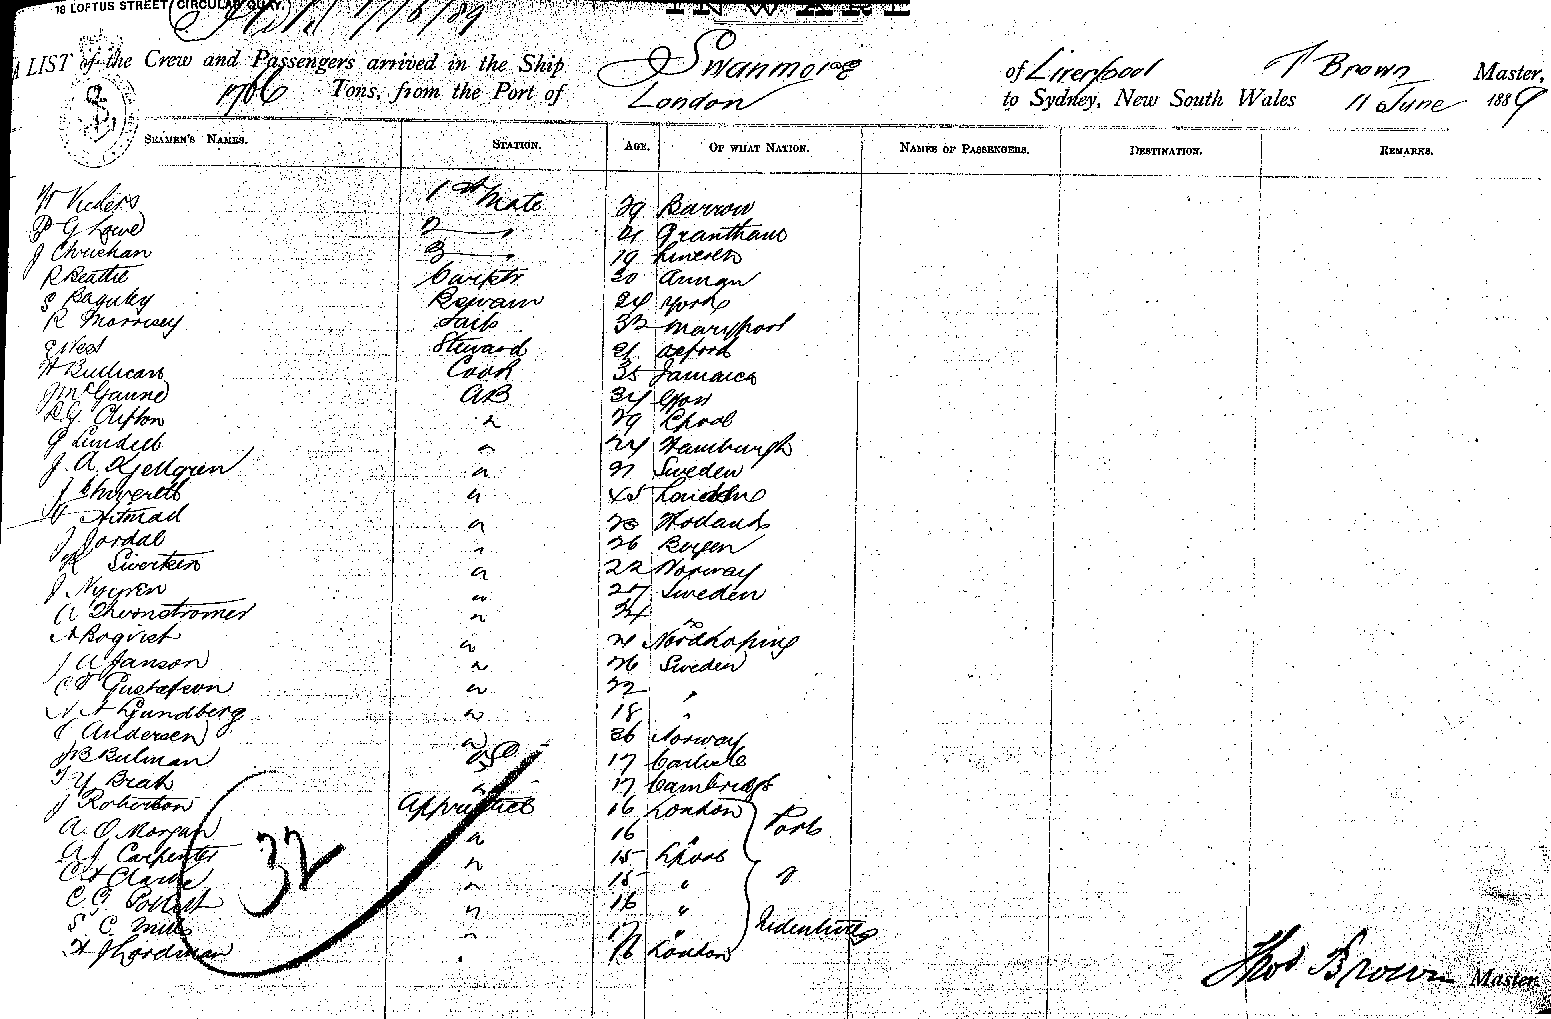 18 LOFTUS STREET (CIRCULAR QUAY.)
INWARD
A LIST of the Crew and Passengers arrived in the Ship Swanmore of Liverpool T Brown Master,
1706 Tons, from the Port of London to Sydney, New South Wales 11 June 1889
SEAMEN'S NAMES. STATION. AGE. OF WHAT NATION. NAMES OF PASSENGERS. DESTINATION. REMARKS.
W Vickers 1st Mate 29 Barrow
P G Lowe 2 " 21 Grantham
J Chrichan 3 " 19 Lincoln
R Beattie Carptr 30 Annan
S Baguley Bswain 24 York
R Morrisey Sails 33 Maryport
West Steward 21 Oxford
W Cook 35 Jamaica
J McGaune AB 34
R G Clifton " 29 Lpool
G Lindell " 24 Hamburgh
J. A. Kjellgren " 21 Sweden
J " 45 London
" 23 Holland
J Jordal " 26 Bergen
Siverken " 22 Norway
J Nygren " 27 Sweden
A " 24 "
A Roqvist " 21 Nordkoping
J A Janson " 26 Sweden
C F Gustafson " 22 "
N A Lundberg " 18 "
J Andersen " 36 Norway
J B Bulman OS 17 Carlisle
T Y " 17 Cambridge
J Robertson Apprentice 16 London
A. O. Morgan " 16 "
A J Carpenter " 15 Lpool
C H Clarke " 15 "
C. G. " 16 "
S. C. Mills " 17 "
H J Lordman 16 London
32
Thos Brown Master.